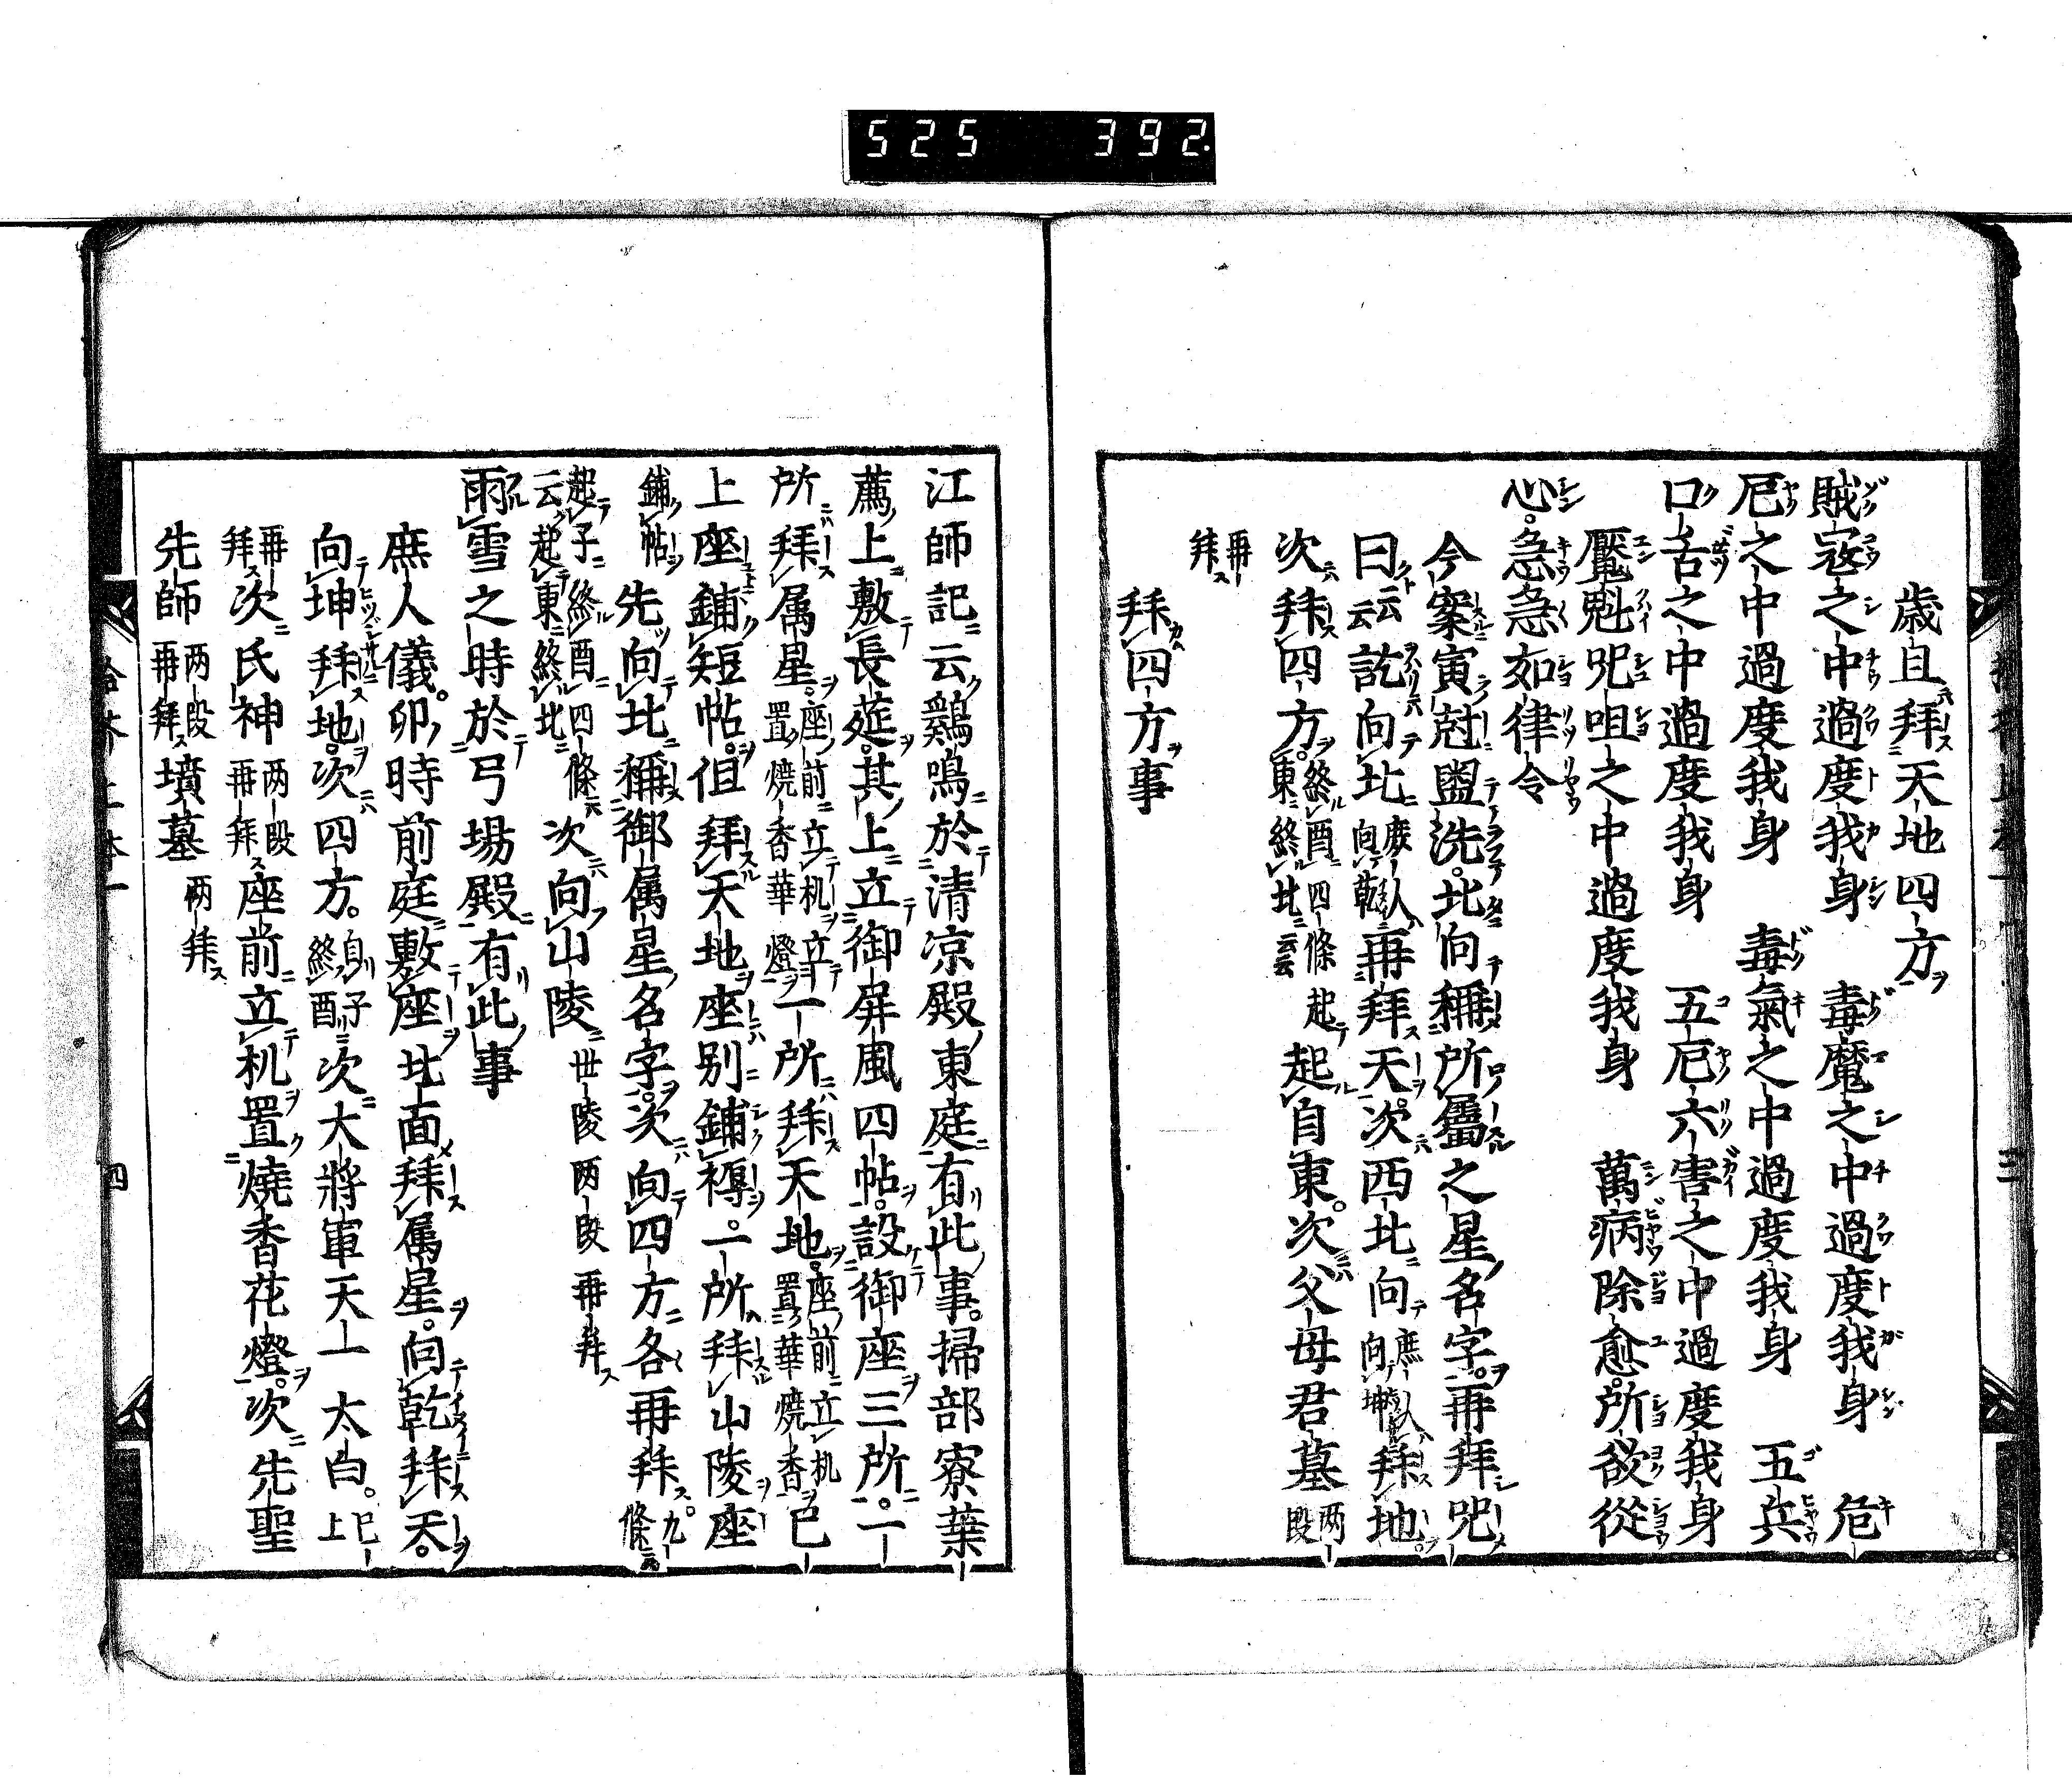 525 392
歳旦拜天地四方
賊寇之中過度我身 毒魔之中過度我身 危
厄之中過度我身 毒氣之中過度我身 五兵
口舌之中過度我身 五厄六害之中過度我身
魘魅咒咀之中過度我身 萬病除愈所欲從
心急急如律令
今案寅尅盥洗北向稱所屬之星名字再拜咒
曰云云訖向北庶人向乾再拜天次西北向庶人向坤拜地
次拜四方終酉四條東終北云云起起自東次父母君墓两段
再拜
拜四方事
江師記云鷄鳴於清凉殿東庭有此事掃部寮葉
薦上敷長莚其上立御屏風四帖設御座三所一
所拜属星座前立机立置燒香華燈一所拜天地座前立机置華燒香已
上座鋪短帖但拜天地座別鋪褥一所拜山陵座
鋪帖先向北稱御属星名字次向四方各再拜九條
起子終酉四條云起東終北次向山陵丗陵两段再拜
雨雪之時於弓場殿有此事
庶人儀卯時前庭敷座北面拜属星向乾拜天
向坤拜地次四方自子終酉次大將軍天一太白已上
再拜次氏神两段再拜座前立机置燒香花燈次先聖
先師两段再拜墳墓两拜
四